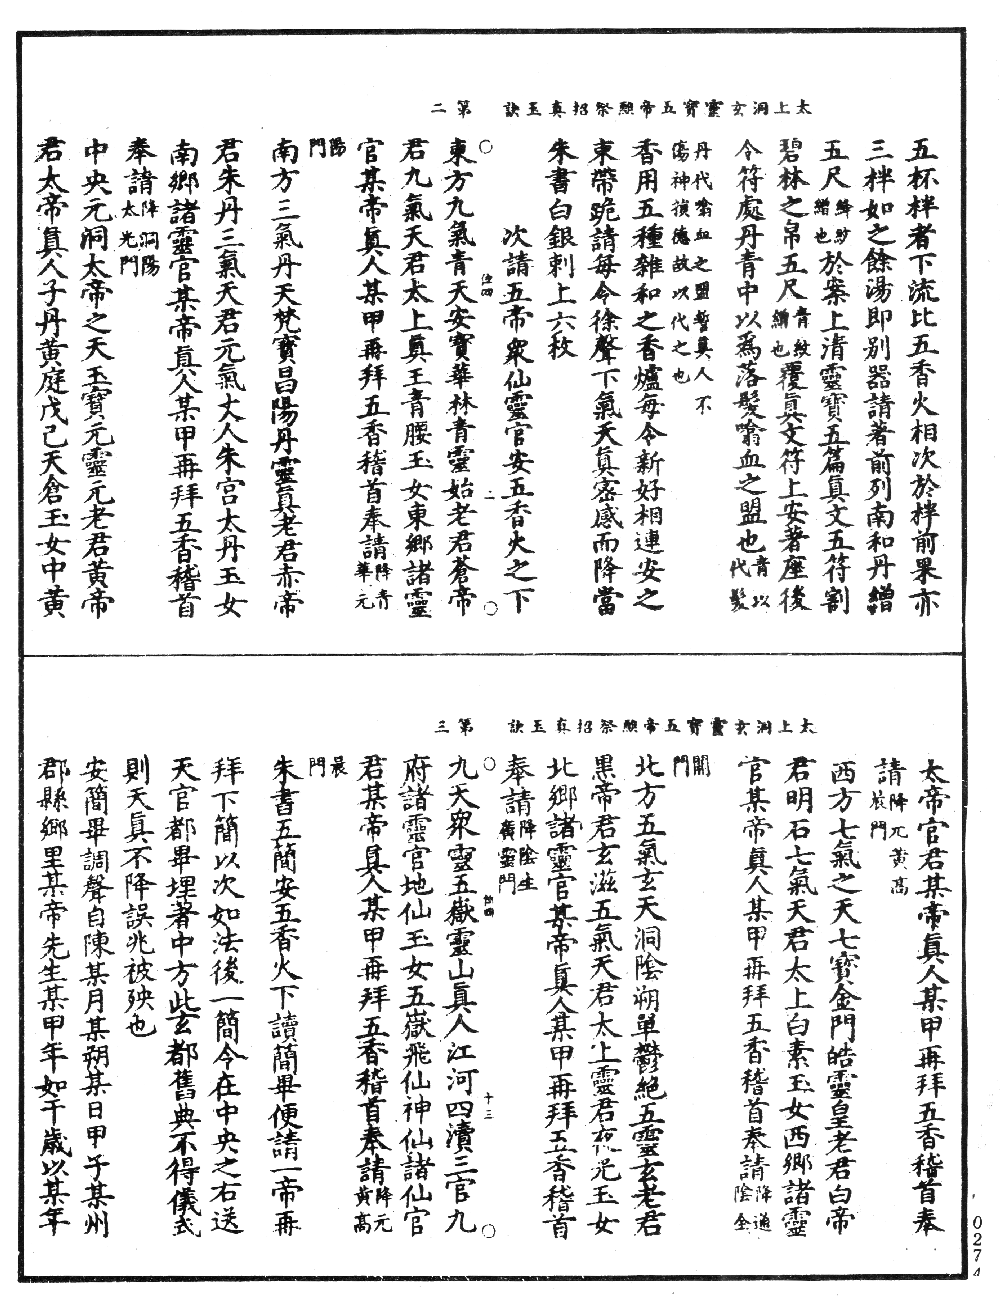 太上洞玄靈寶五帝醮祭招真玉訣　第二
五杯柈者下流比五香火相次於柈前果亦
三柈如之餘湯即別器請著前列南和丹繒
五尺絳紗繒也於案上清靈寶五篇真文五符割
碧林之帛五尺青紋繒也覆真文符上安著座後
令符處丹青中以爲落髮噏血之盟也青以代髮
丹代噏血之盟誓真人不傷神損德故以代之也
香用五種雜和之香爐每令新好相連安之
東帶跪請每令徐聲下氣天真密感而降當
朱書白銀刺上六枚
次請五帝衆仙靈官安五香火之下
東方九氣青天安寶華林青靈始老君蒼帝
君九氣天君太上真王青腰玉女東鄉諸靈
官某帝真人某甲再拜五香稽首奉請降青華元
陽門
南方三氣丹天梵寶昌陽丹靈真老君赤帝
君朱丹三氣天君元氣丈人朱宮太丹玉女
南鄉諸靈官某帝真人某甲再拜五香稽首
奉請降洞陽太光門
中央元洞太帝之天玉寶元靈元老君黃帝
君太帝真人子丹黃庭戊己天倉玉女中黃
太上洞玄靈寶五帝醮祭招真玉訣　第三
太帝官君某帝真人某甲再拜五香稽首奉
請降元黃高晨門
西方七氣之天七寶金門皓靈皇老君白帝
君明石七氣天君太上白素玉女西鄉諸靈
官某帝真人某甲再拜五香稽首奉請降通陰金
闕門
北方五氣玄天洞陰朔單鬱絕五靈玄老君
黑帝君玄滋五氣天君太上靈君夜光玉女
北鄉諸靈官某帝真人某甲再拜五香稽首
奉請降陰生廣靈門
九天衆靈五嶽靈山真人江河四瀆三官九
府諸靈官地仙玉女五嶽飛仙神仙諸仙官
君某帝真人某甲再拜五香稽首奉請降元黃高
晨門
朱書五簡安五香火下讀簡畢便請一帝再
拜下簡以次如法後一簡令在中央之右送
天官都畢埋著中方此玄都舊典不得儀式
則天真不降誤兆被殃也
安簡畢調聲自陳某月某朔某日甲子某州
郡縣鄉里某帝先生某甲年如干歲以某年
0274